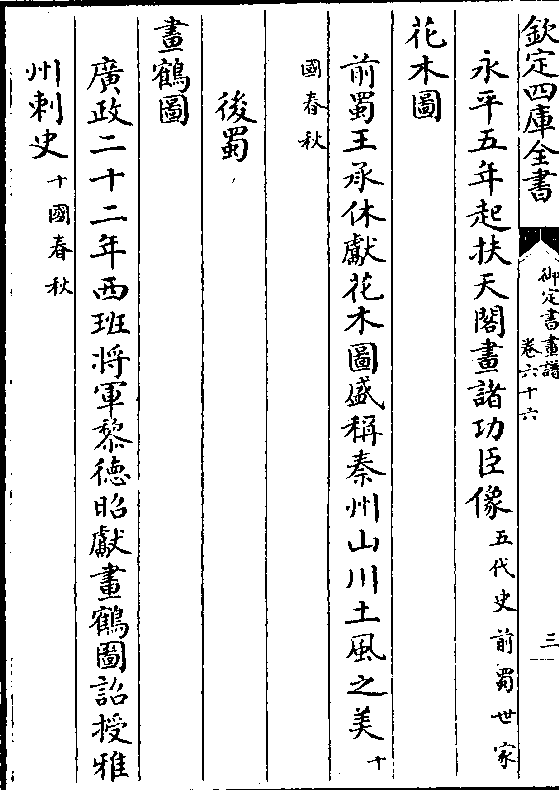 欽定四庫全書
御定書畫譜
卷六十六
三
永平五年起扶天閣畫諸功臣像五代史前蜀世家
花木圖
前蜀王承休獻花木圖盛稱秦州山川土風之美十
國春秋
後蜀
畫鶴圖
廣政二十二年西班將軍黎德昭獻畫鶴圖詔授雅
州刺史十國春秋